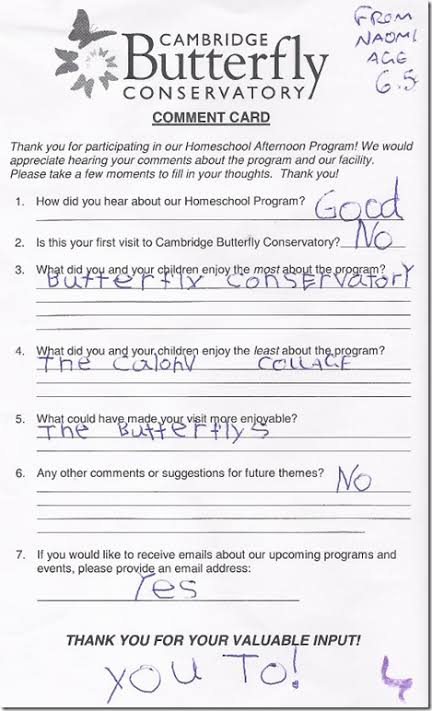 FROM
NAOMI
AGE
6.5
CAMBRIDGE
Butterfly
CONSERVATORY
COMMENT CARD
Thank you for participating in our Homeschool Afternoon Program! We would
appreciate hearing your comments about the program and our facility.
Please take a few moments to fill in your thoughts. Thank you!
1. How did you hear about our Homeschool Program? Good
2. Is this your first visit to Cambridge Butterfly Conservatory? No
3. What did you and your children enjoy the most about the program?
Butterfly ConsErvatorY
4. What did you and your children enjoy the least about the program?
The CalohV COLLAGE
5. What could have made your visit more enjoyable?
The Butterflys
6. Any other comments or suggestions for future themes? No
7. If you would like to receive emails about our upcoming programs and
events, please provide an email address:
Yes
THANK YOU FOR YOUR VALUABLE INPUT!
you To!
4